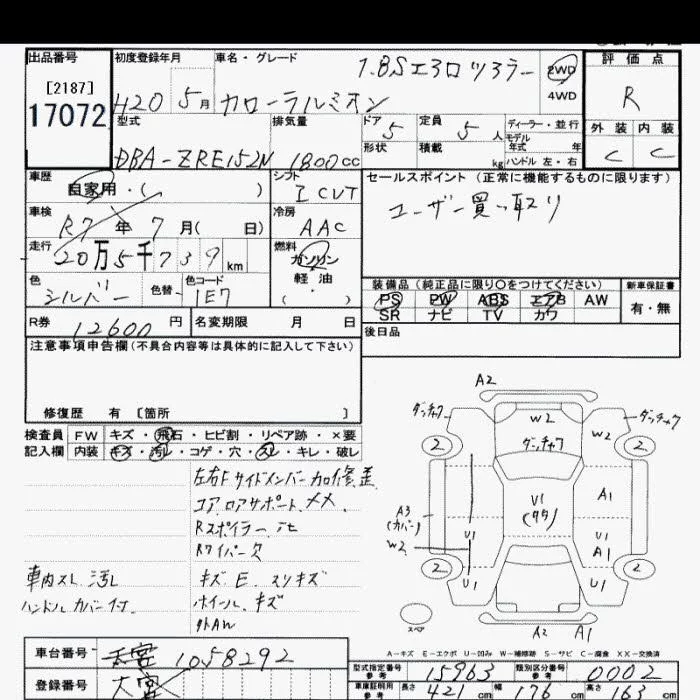 出品番号
[2187]
17072
初度登録年月
H20 5月
車名・グレード
1.8Sエアロツアラー
カローラルミオン
2WD
4WD
評価点
R
外装 内装
C C
型式
DBA-ZRE152N
排気量
1800cc
ドア 5
定員 5人
ディーラー・並行
モデル年式 年
形状
積載 kg
ハンドル 左・右
車歴
自家用・( )
シフト
I CVT
セールスポイント(正常に機能するものに限ります)
ユーザー買い取り
車検
R7年 7月( 日)
冷房
AAC
走行
20万5千739km
燃料
ガソリン
軽油
・( )
色
シルバー
色替
色コード
1E7
装備品(純正品に限り○をつけてください)
新車保証書
PS PW ABS エアB AW
SR ナビ TV カワ
有・無
R券 12600円
名変期限 月 日
後日品
注意事項申告欄(不具合内容等は具体的に記入して下さい)
修復歴 有 [箇所 ]
検査員記入欄
FW キズ・飛石・ヒビ割・リペア跡・×要
内装 キズ・汚レ・コゲ・穴・スレ・キレ・破レ
左右Fサイドメンバー
コアロアサポート、××、
Rスポイラー
Rワイパー欠
キズ E スリキズ
ホイールキズ
社外AW
車内スレ 汚レ
ハンドルカバー付
A2
W2
W2
2
2
U1
A1
A3
(カバー)
W2
U1
U1
A1
U1
U1
2
2
スペア
A2 A1
A-キズ E-エクボ U-凹み W-補修跡 S-サビ C-腐食 XX-交換済
車台番号
1058292
登録番号
大宮
型式指定番号 参考
15963
類別区分番号 参考
0002
車庫証明用 参考
長さ 421cm
幅 176cm
高さ 163cm